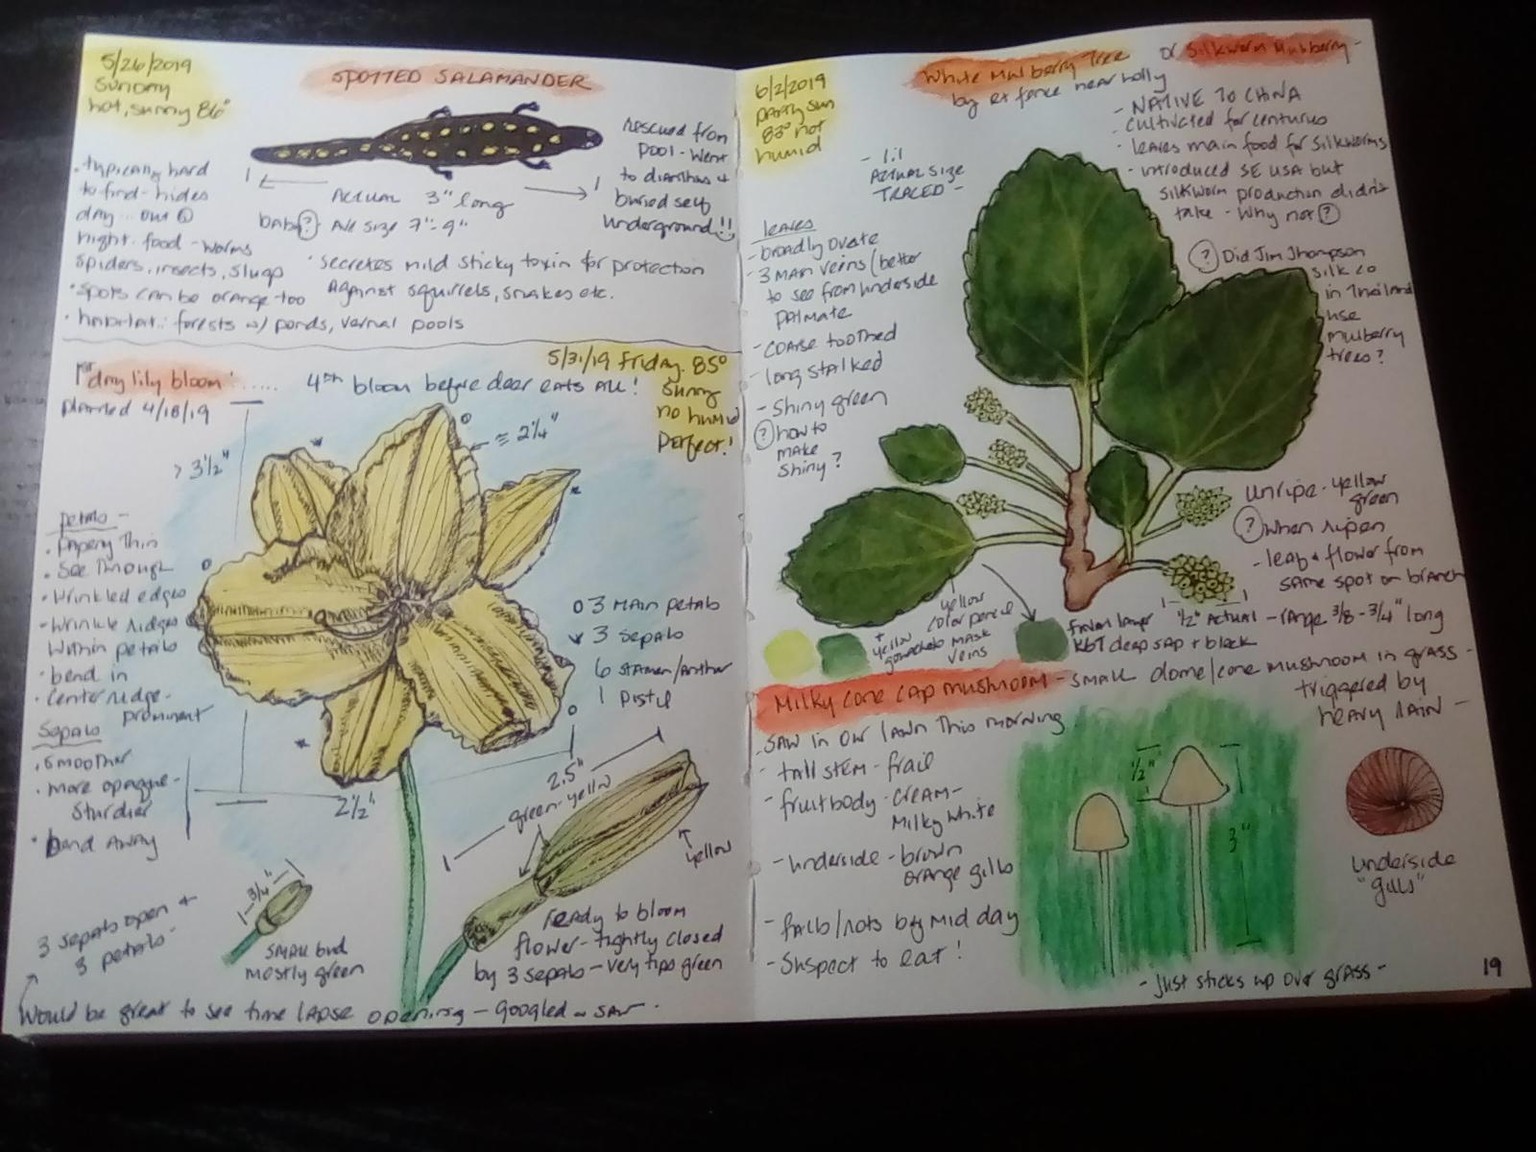 5/26/2019
Sunday
hot, sunny 86°
SPOTTED SALAMANDER
• typically hard
to find - hides
day .. out @
night. food - worms
spiders, insects, slugs
• spots can be orange too
• habitat: forests w/ ponds, vernal pools
Actual 3" long
baby? Av size 7"-9"
• secretes mild sticky toxin for protection
Against squirrels, snakes etc.
rescued from
pool - went
to dianthus +
buried self
underground!!
1st day lily bloom .....
planted 4/18/19
4th bloom before deer eats all!
5/31/19 Friday. 85°
Sunny
no humid
perfect!
> 3 1/2"
≈ 2 1/4"
Petals -
• papery thin
• see through
• wrinkled edges
• wrinkle ridges
within petals
• bend in
• center ridge -
prominent
Sepals
• smoother
• more opaque -
sturdier
• bend away
o 3 main petals
3 sepals
6 stamen/anther
1 pistil
2 1/2"
2.5"
green-yellow
yellow
3/4"
small bud
mostly green
ready to bloom
flower - tightly closed
by 3 sepals - very tips green
3 sepals open +
3 petals -
Would be great to see time lapse opening - googled ~ saw.
6/2/2019
partly sun
83° not
humid
White Mulberry Tree or Silkworm Mulberry -
by ext fence near holly
- NATIVE TO CHINA
- cultivated for centuries
- leaves main food for silkworms
- introduced SE USA but
silkworm production didn't
take - why not ?
? Did Jim Thompson
silk co
in Thailand
use
mulberry
trees?
- 1:1
Actual size
TRACED -
leaves
- broadly ovate
- 3 main veins (better
to see from underside
palmate
- coarse toothed
- long stalked
- shiny green
? how to
make
shiny?
unripe - yellow
green
? when ripen
- leaf + flower from
same spot on branch
1/2" actual - range 3/8 - 3/4" long
+
yellow
gouache to mask
veins
yellow
color pencil
final layer
K&T deep sap + black
Milky cone cap mushroom - small dome/cone mushroom in grass -
triggered by
heavy rain -
- saw in our lawn this morning
- tall stem - frail
- fruitbody - cream -
milky white
- underside - brown
orange gills
- falls/rots by mid day
- suspect to eat!
1/2"
3"
underside
"gills"
- just sticks up over grass -
19